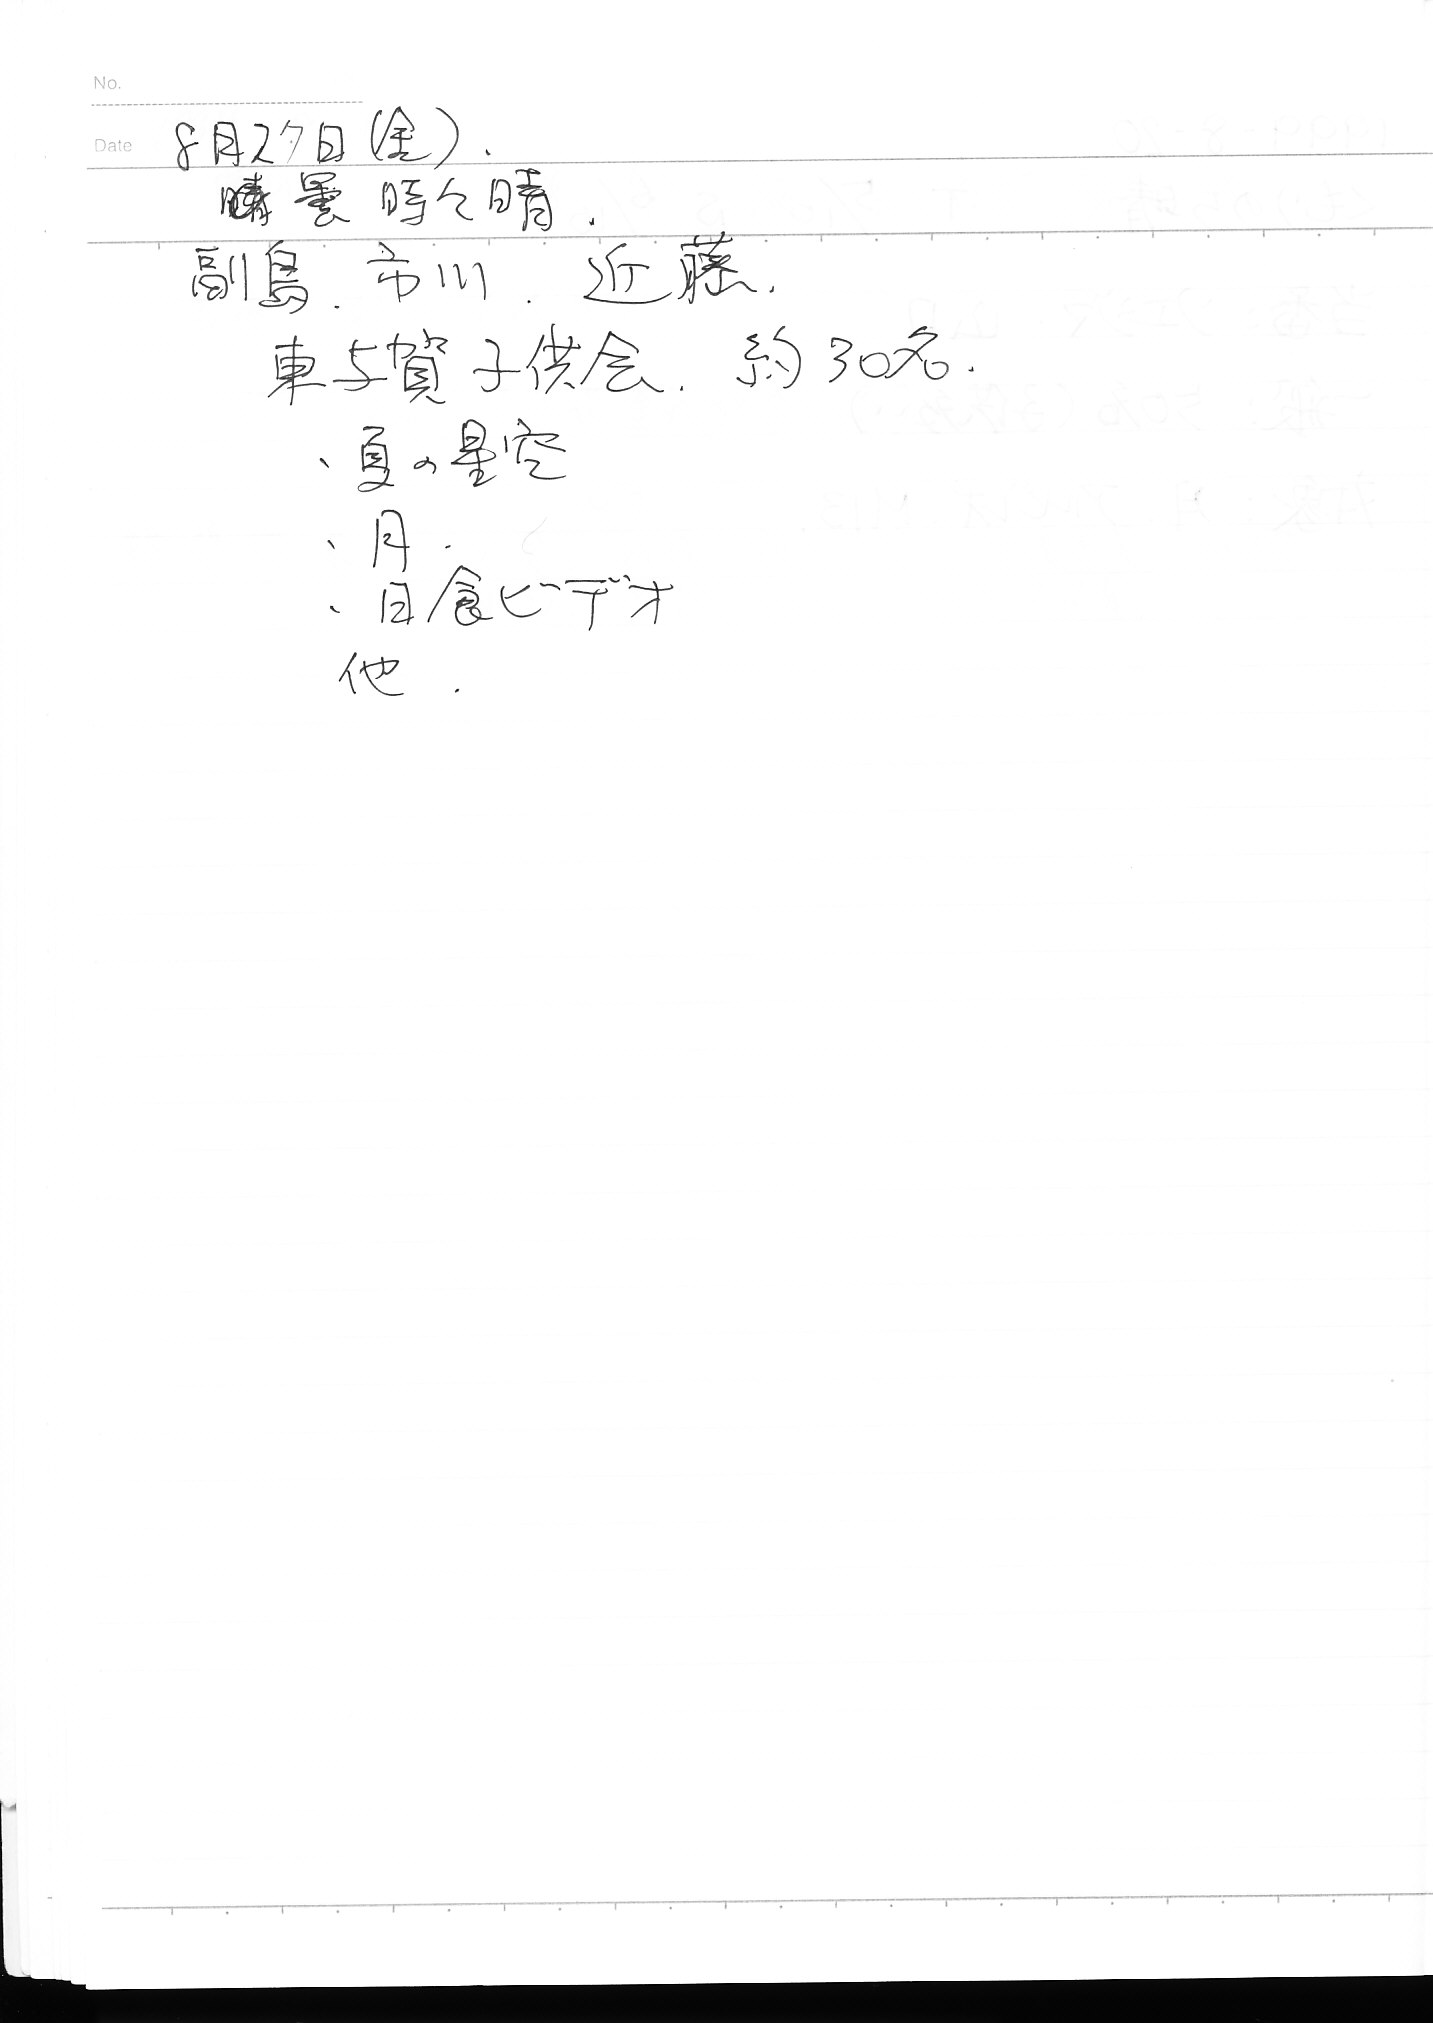 No.
Date 8月27日(金).
曇時々晴.
副島. 市川. 近藤.
東与賀子供会. 約30名.
、夏の星空
、月.
、日食ビデオ
他.